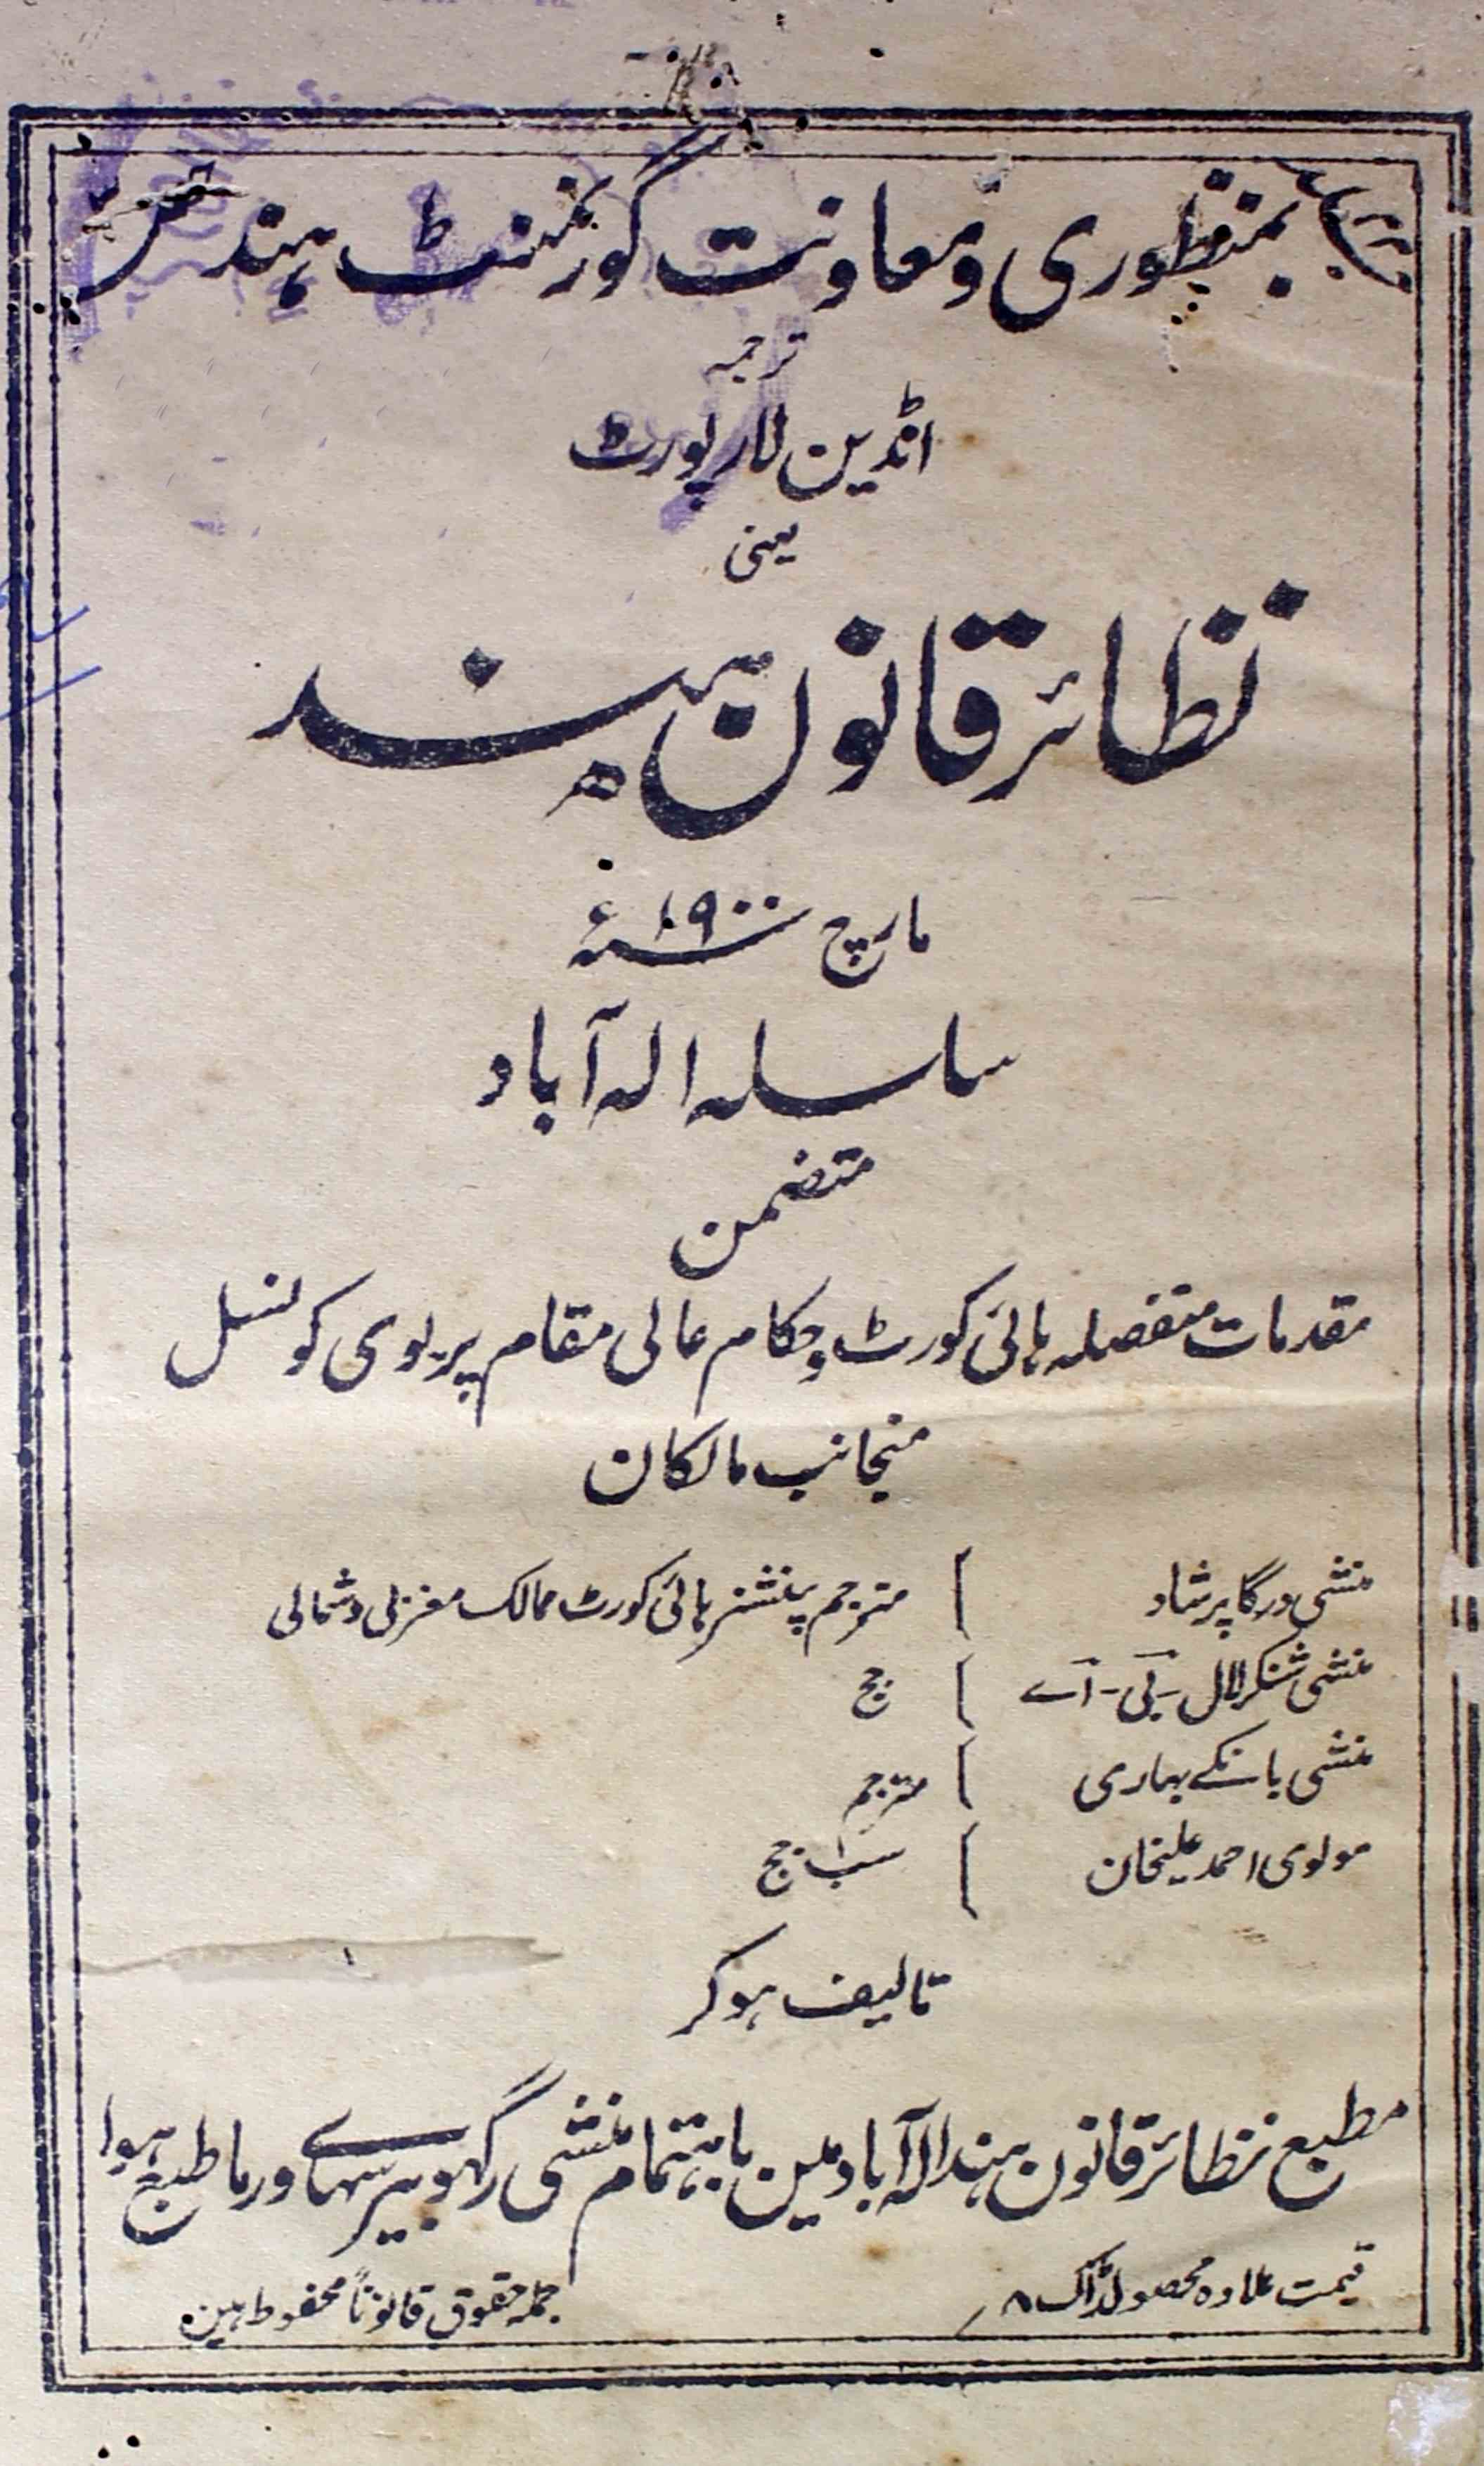 بمنظوری ومعاونت گورنمنٹ ہند
ترجمہ
انڈین لارپورٹ
یعنی
نظائر قانون ہند
مارچ سنہ ۱۹۰۰ء
سلسلہ الہ آباد
متضمن
مقدمات منفصلہ ہائی کورٹ وحکام عالی مقام پریوی کونسل
منجانب مالکان
منشی درگا پرشاد ] مترجم پنشنر ہائی کورٹ ممالک مغربی وشمالی
منشی شنکر لال - بی - اے ] جج
منشی بانکے بہاری ] مترجم
مولوی احمد علیخان ] سب جج
تالیف ہوکر
مطبع نظائر قانون ہند الہ آباد مین باہتمام منشی رگھوبیر سہاے ورما طبع ہوا
قیمت علاوہ محصول ڈاک ۸ر
جملہ حقوق قانوناً محفوظ ہین